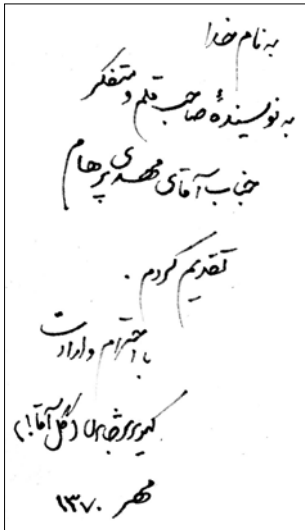 به نام خدا
به نویسندهٔ صاحب قلم و متفکر
جناب آقای مهدی پرهام
تقدیم کردم.
با احترام و ارادت
کیومرث صابری (گل آقا!)
مهر ۱۳۷۰